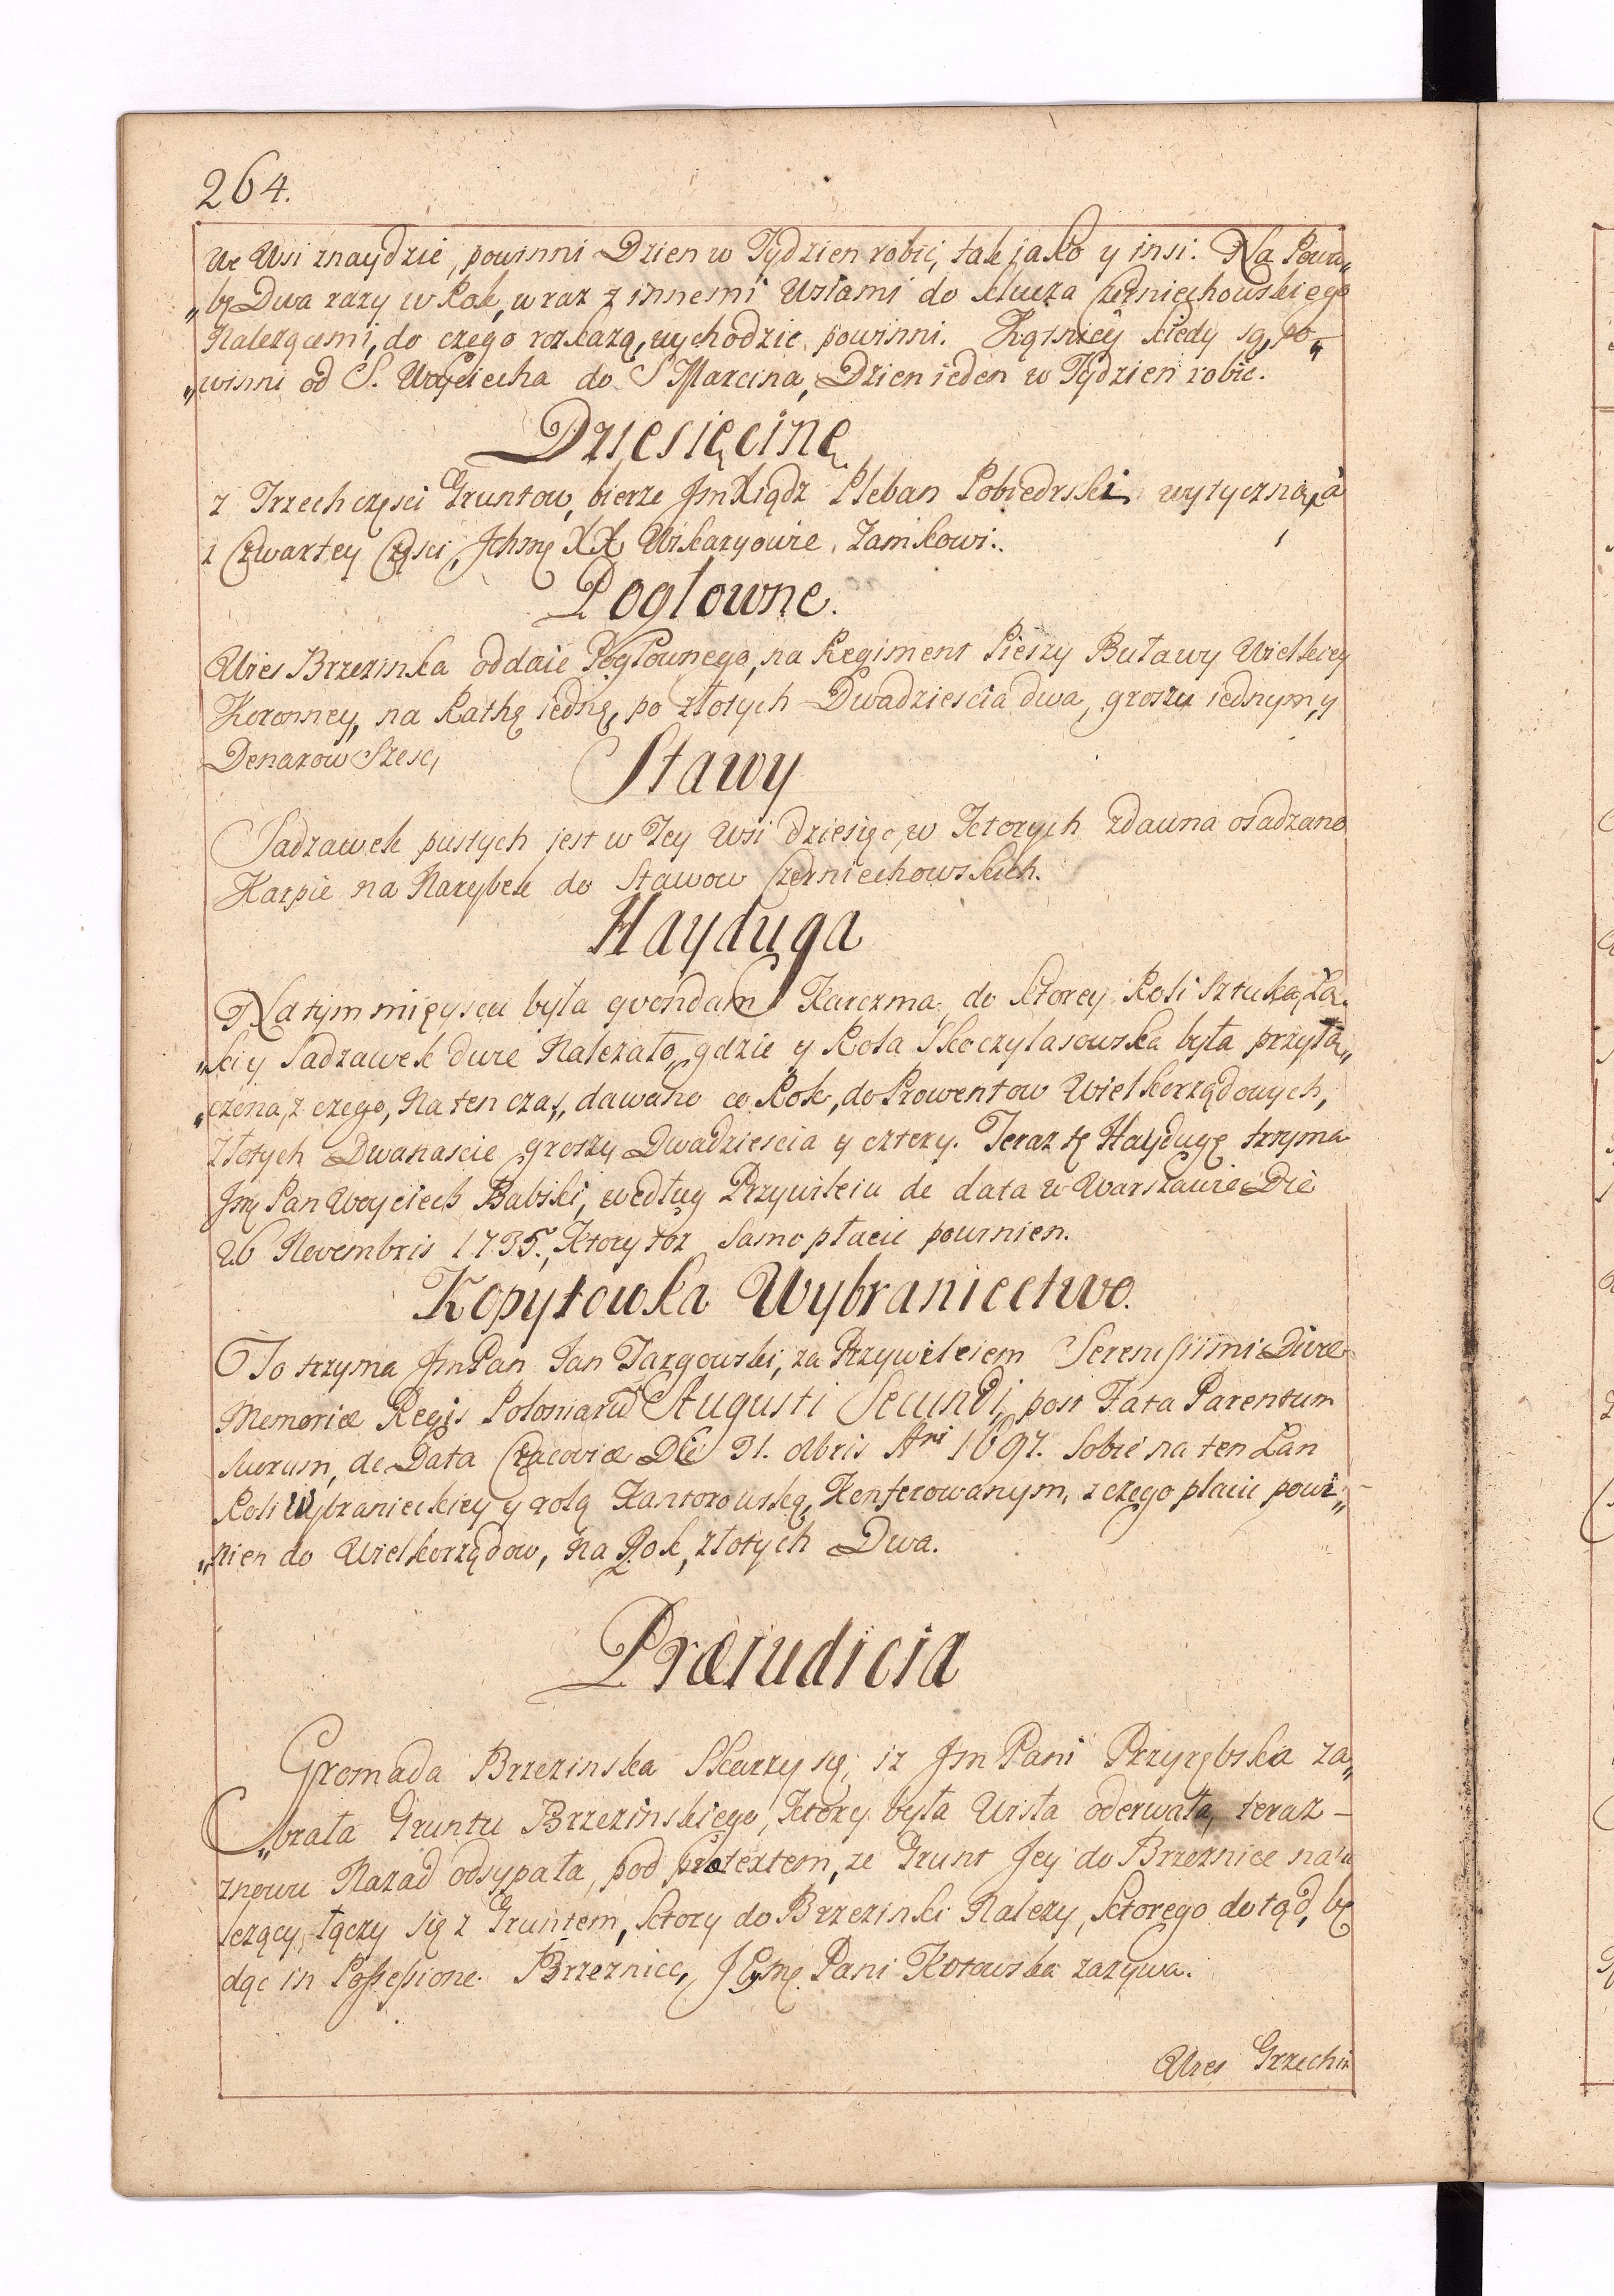 264.
We Wsi znaydzie, powinni Dzien w Tydzien robic, tak jako y insi. Na Powa„
„bę Dwa razy w Rok, wraz z innemi Wsiami do klucza Czerniechowskiego
Nalezącemi, do czego rozkazą, wychodzic powinni. Kątnicy kiedy są, po„
„winni od S. Woyciecha do S Marcina, Dzien ieden w Tydzien robic.
Dziesięcinę
z Trzech częsci Gruntow, bierze Jm Xiądz Pleban Pobiedrski wytyczną, a
z Czwartey Częsci, Jchmę XX Wikaryowie, Zamkowi.
Poglowne.
Wies Brzezinka oddaie Pogłownego, na Regiment Pieszy Buławy Wielkiey
Koronney, na Rathę iednę, po złotych Dwadziescia dwa, groszu iednym, y
Denarow Szesc,
Stawy
Sadzawek pustych jest w Tey Wsi dziesięc, w Ktorych zdawna osadzano
Karpie na Narybek do Stawow Czerniechowskich.
Hayduga
Na tym mięyscu była qvondam Karczma, do Ktorey Roli Sztuka, Łą„
„ki y Sadzawek dwie Nalezało, gdzie y Rola Skoczylasowska była przyłą„
„czona, z czego, Na ten czas, dawano co Rok, do Prowentow Wielkorządowych,
Złotych Dwanascie groszy Dwadziescia y cztery. Teraz tę Haydugę trzyma
Jmę Pan Woyciech Babski, według Przywileiu de data w Warszawie Die
26 Novembris 1735, Ktory toz Samo płacic powinien.
Kopytowka Wybraniectwo.
To trzyma Jm Pan Jan Targowski, za Przywileiem Serenissimi Divæ
Memoriæ Regis Poloniarũ Augusti Secundi, post Fata Parentum
Suorum, de Data Cracoviæ Die 31. 8bris Ani 1697. Sobie na ten Łan
Roli Wybranieckiey y rolą Kantorowską, Konferowanym, z czego płacic powi„
„nien do Wielkorządow, na Rok, złotych Dwa.
Præiudicia
Gromada Brzezinska Skarzy się, iz Jm Pani Przyrębska za„
„brała Gruntu Brzezinskiego, Ktory była Wisła oderwała, teraz
znowu Nazad odsypała, pod pretextem, ze Grunt Jey do Brzeznice nale
lezący, łączy się z Gruntem, ktory do Brzezinki Nalezy, ktorego do tąd, bę
dąc in Possessione Brzeznice, Jeymę Pani Kotowska zazywa.
Wies Grzechin